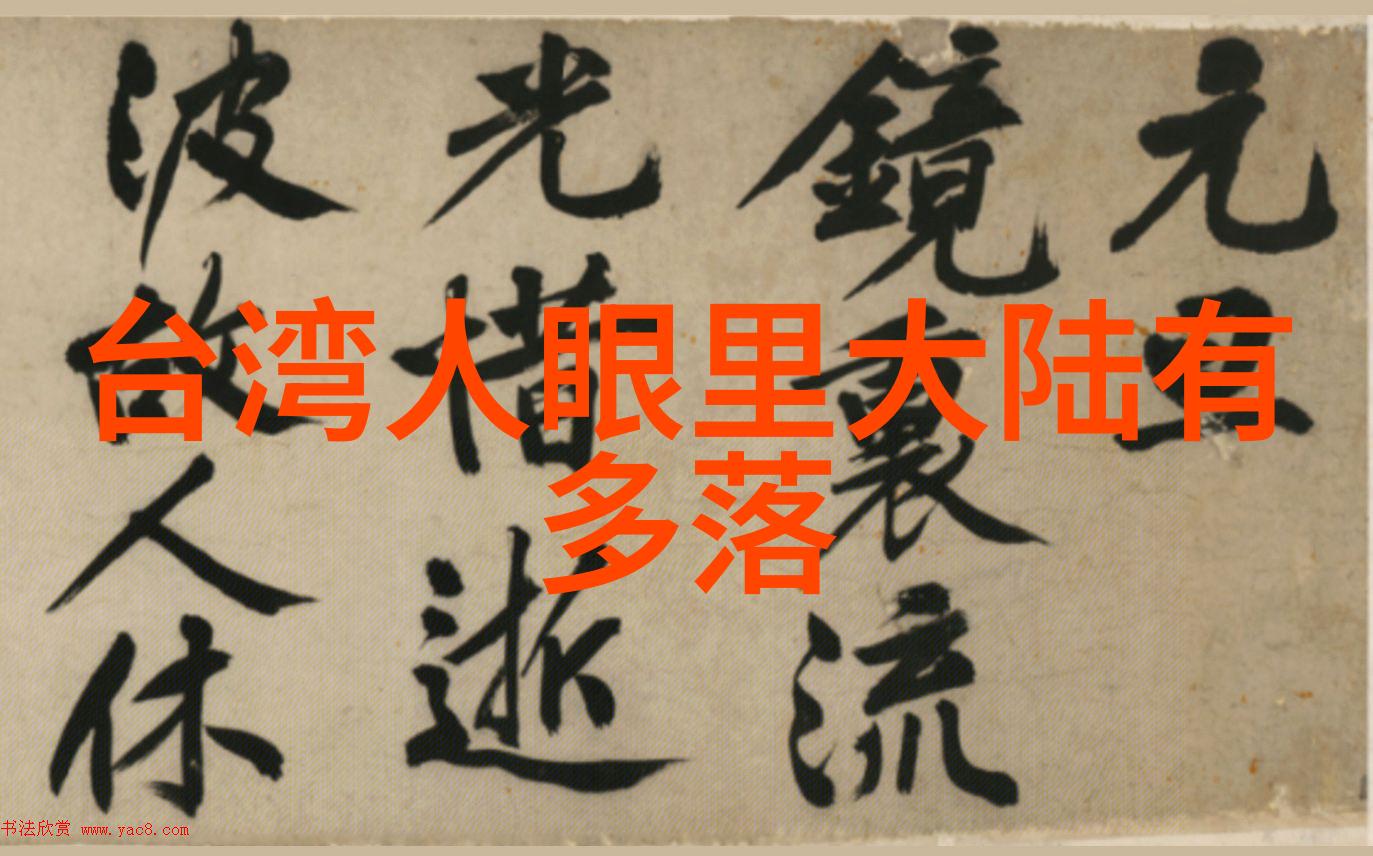 台湾人眼里大陆有
多落
元
鏡裏流
光惜逝
波故人休
书法欣赏 www.yac8.com